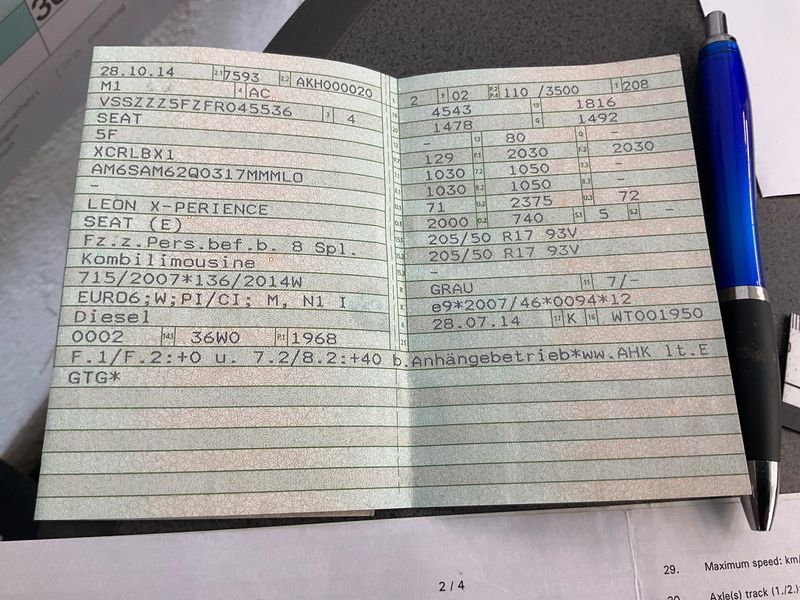 28.10.14 2.1 7593 2.2 AKH000020
M1 4 AC
VSSZZZ5FZFR045536 3 4
SEAT
5F
XCRLBX1
AM6SAM62Q0317MMML0
-
LEON X-PERIENCE
SEAT (E)
Fz.z.Pers.bef.b. 8 Spl.
Kombilimousine
715/2007*136/2014W
EURO6;W;PI/CI; M, N1 I
Diesel
0002 14.1 36W0 P.1 1968
L 2 9 02 P.2 P.4 110 /3500 T 208
18 4543 19 1816
20 1478 G 1492
12 - 13 80 Q -
V.7 129 F.1 2030 F.2 2030
7.1 1030 7.2 1050 7.3 -
8.1 1030 8.2 1050 8.3 -
U.1 71 U.2 2375 U.3 72
O.1 2000 O.2 740 S.1 5 S.2 -
15.1 205/50 R17 93V
15.2 205/50 R17 93V
15.3 -
R GRAU 11 7/-
K e9*2007/46*0094*12
6 28.07.14 17 K 16 WT001950
21
F.1/F.2:+0 u. 7.2/8.2:+40 b.Anhängebetrieb*ww.AHK lt.E
GTG*
2 / 4
29. Maximum speed: km/
Axle(s) track (1./2.)